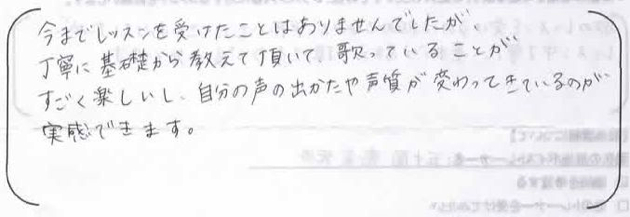 今までレッスンを受けたことはありませんでしたが、
丁寧に基礎から教えて頂いて、歌っていることが
すごく楽しいし、自分の声の出かたや声質が変わってきているのが
実感できます。